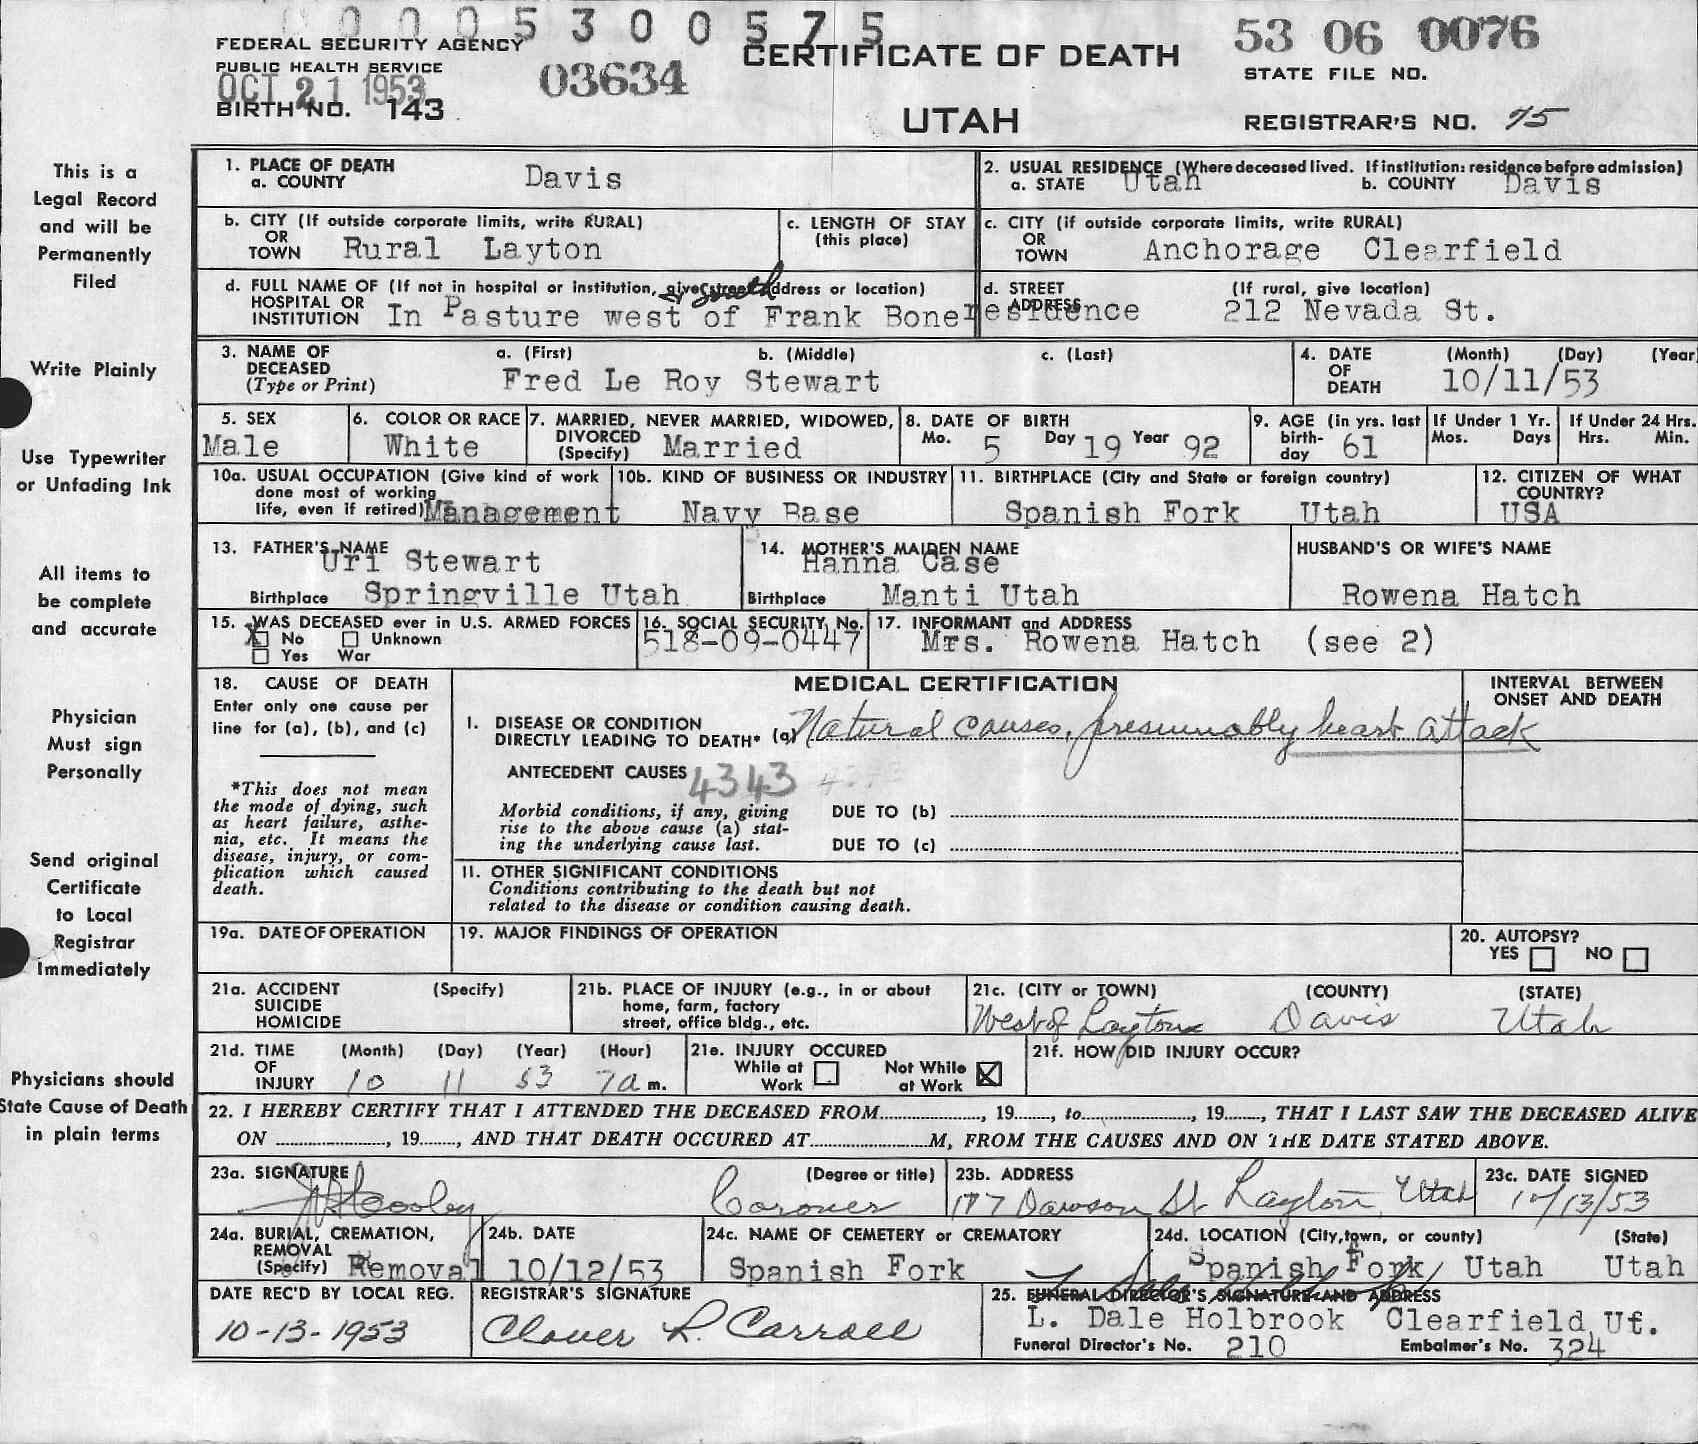 0 0 0 5 3 0 0 5 7 5
FEDERAL SECURITY AGENCY
PUBLIC HEALTH SERVICE
OCT 21 1953
BIRTH NO. 143
03634
CERTIFICATE OF DEATH
UTAH
53 06 0076
STATE FILE NO.
REGISTRAR'S NO. 75
This is a
Legal Record
and will be
Permanently
Filed
Write Plainly
Use Typewriter
or Unfading Ink
All items to
be complete
and accurate
Physician
Must sign
Personally
Send original
Certificate
to Local
Registrar
Immediately
Physicians should
State Cause of Death
in plain terms
1. PLACE OF DEATH
a. COUNTY Davis
2. USUAL RESIDENCE (Where deceased lived. If institution: residence before admission)
a. STATE Utah b. COUNTY Davis
b. CITY (If outside corporate limits, write RURAL)
OR
TOWN Rural Layton
c. LENGTH OF STAY
(this place)
c. CITY (if outside corporate limits, write RURAL)
OR
TOWN Anchorage Clearfield
d. FULL NAME OF (If not in hospital or institution, give street address or location)
HOSPITAL OR
INSTITUTION In Pasture west of Frank Bone residence
south
d. STREET
ADDRESS
(If rural, give location)
212 Nevada St.
3. NAME OF
DECEASED
(Type or Print)
a. (First) b. (Middle) c. (Last)
Fred Le Roy Stewart
4. DATE
OF
DEATH
(Month) (Day) (Year
10/11/53
5. SEX
Male
6. COLOR OR RACE
White
7. MARRIED, NEVER MARRIED, WIDOWED,
DIVORCED
(Specify) Married
8. DATE OF BIRTH
Mo. 5 Day 19 Year 92
9. AGE (in yrs. last
birth-
day 61
If Under 1 Yr.
Mos. Days
If Under 24 Hrs.
Hrs. Min.
10a. USUAL OCCUPATION (Give kind of work
done most of working
life, even if retired) Management
10b. KIND OF BUSINESS OR INDUSTRY
Navy Base
11. BIRTHPLACE (City and State or foreign country)
Spanish Fork Utah
12. CITIZEN OF WHAT
COUNTRY?
USA
13. FATHER'S NAME
Uri Stewart
Birthplace Springville Utah
14. MOTHER'S MAIDEN NAME
Hanna Case
Birthplace Manti Utah
HUSBAND'S OR WIFE'S NAME
Rowena Hatch
15. WAS DECEASED ever in U.S. ARMED FORCES
X No Unknown
Yes War
16. SOCIAL SECURITY No.
518-09-0447
17. INFORMANT and ADDRESS
Mrs. Rowena Hatch (see 2)
18. CAUSE OF DEATH
Enter only one cause per
line for (a), (b), and (c)
*This does not mean
the mode of dying, such
as heart failure, asthe-
nia, etc. It means the
disease, injury, or com-
plication which caused
death.
MEDICAL CERTIFICATION
INTERVAL BETWEEN
ONSET AND DEATH
I. DISEASE OR CONDITION
DIRECTLY LEADING TO DEATH* (a) Natural causes, presumably heart attack
ANTECEDENT CAUSES 4343
Morbid conditions, if any, giving
rise to the above cause (a) stat-
ing the underlying cause last.
DUE TO (b)
DUE TO (c)
11. OTHER SIGNIFICANT CONDITIONS
Conditions contributing to the death but not
related to the disease or condition causing death.
19a. DATE OF OPERATION
19. MAJOR FINDINGS OF OPERATION
20. AUTOPSY?
YES NO
21a. ACCIDENT (Specify)
SUICIDE
HOMICIDE
21b. PLACE OF INJURY (e.g., in or about
home, farm, factory
street, office bldg., etc.
21c. (CITY or TOWN) (COUNTY) (STATE)
West of Layton Davis Utah
21d. TIME (Month) (Day) (Year) (Hour)
OF
INJURY 10 11 53 7a m.
21e. INJURY OCCURED
While at Not While
Work at Work X
21f. HOW DID INJURY OCCUR?
22. I HEREBY CERTIFY THAT I ATTENDED THE DECEASED FROM, 19, to, 19, THAT I LAST SAW THE DECEASED ALIVE
ON, 19, AND THAT DEATH OCCURED AT M, FROM THE CAUSES AND ON THE DATE STATED ABOVE.
23a. SIGNATURE (Degree or title)
Cooley Coroner
23b. ADDRESS
177 Dawson St Layton, Utah
23c. DATE SIGNED
10/13/53
24a. BURIAL, CREMATION,
REMOVAL
(Specify) Removal
24b. DATE
10/12/53
24c. NAME OF CEMETERY or CREMATORY
Spanish Fork
24d. LOCATION (City, town, or county) (State)
Spanish Fork Utah Utah
DATE REC'D BY LOCAL REG.
10-13-1953
REGISTRAR'S SIGNATURE
Clover R. Carroll
25. FUNERAL DIRECTOR'S SIGNATURE AND ADDRESS
L. Dale Holbrook Clearfield Ut.
Funeral Director's No. 210 Embalmer's No. 324